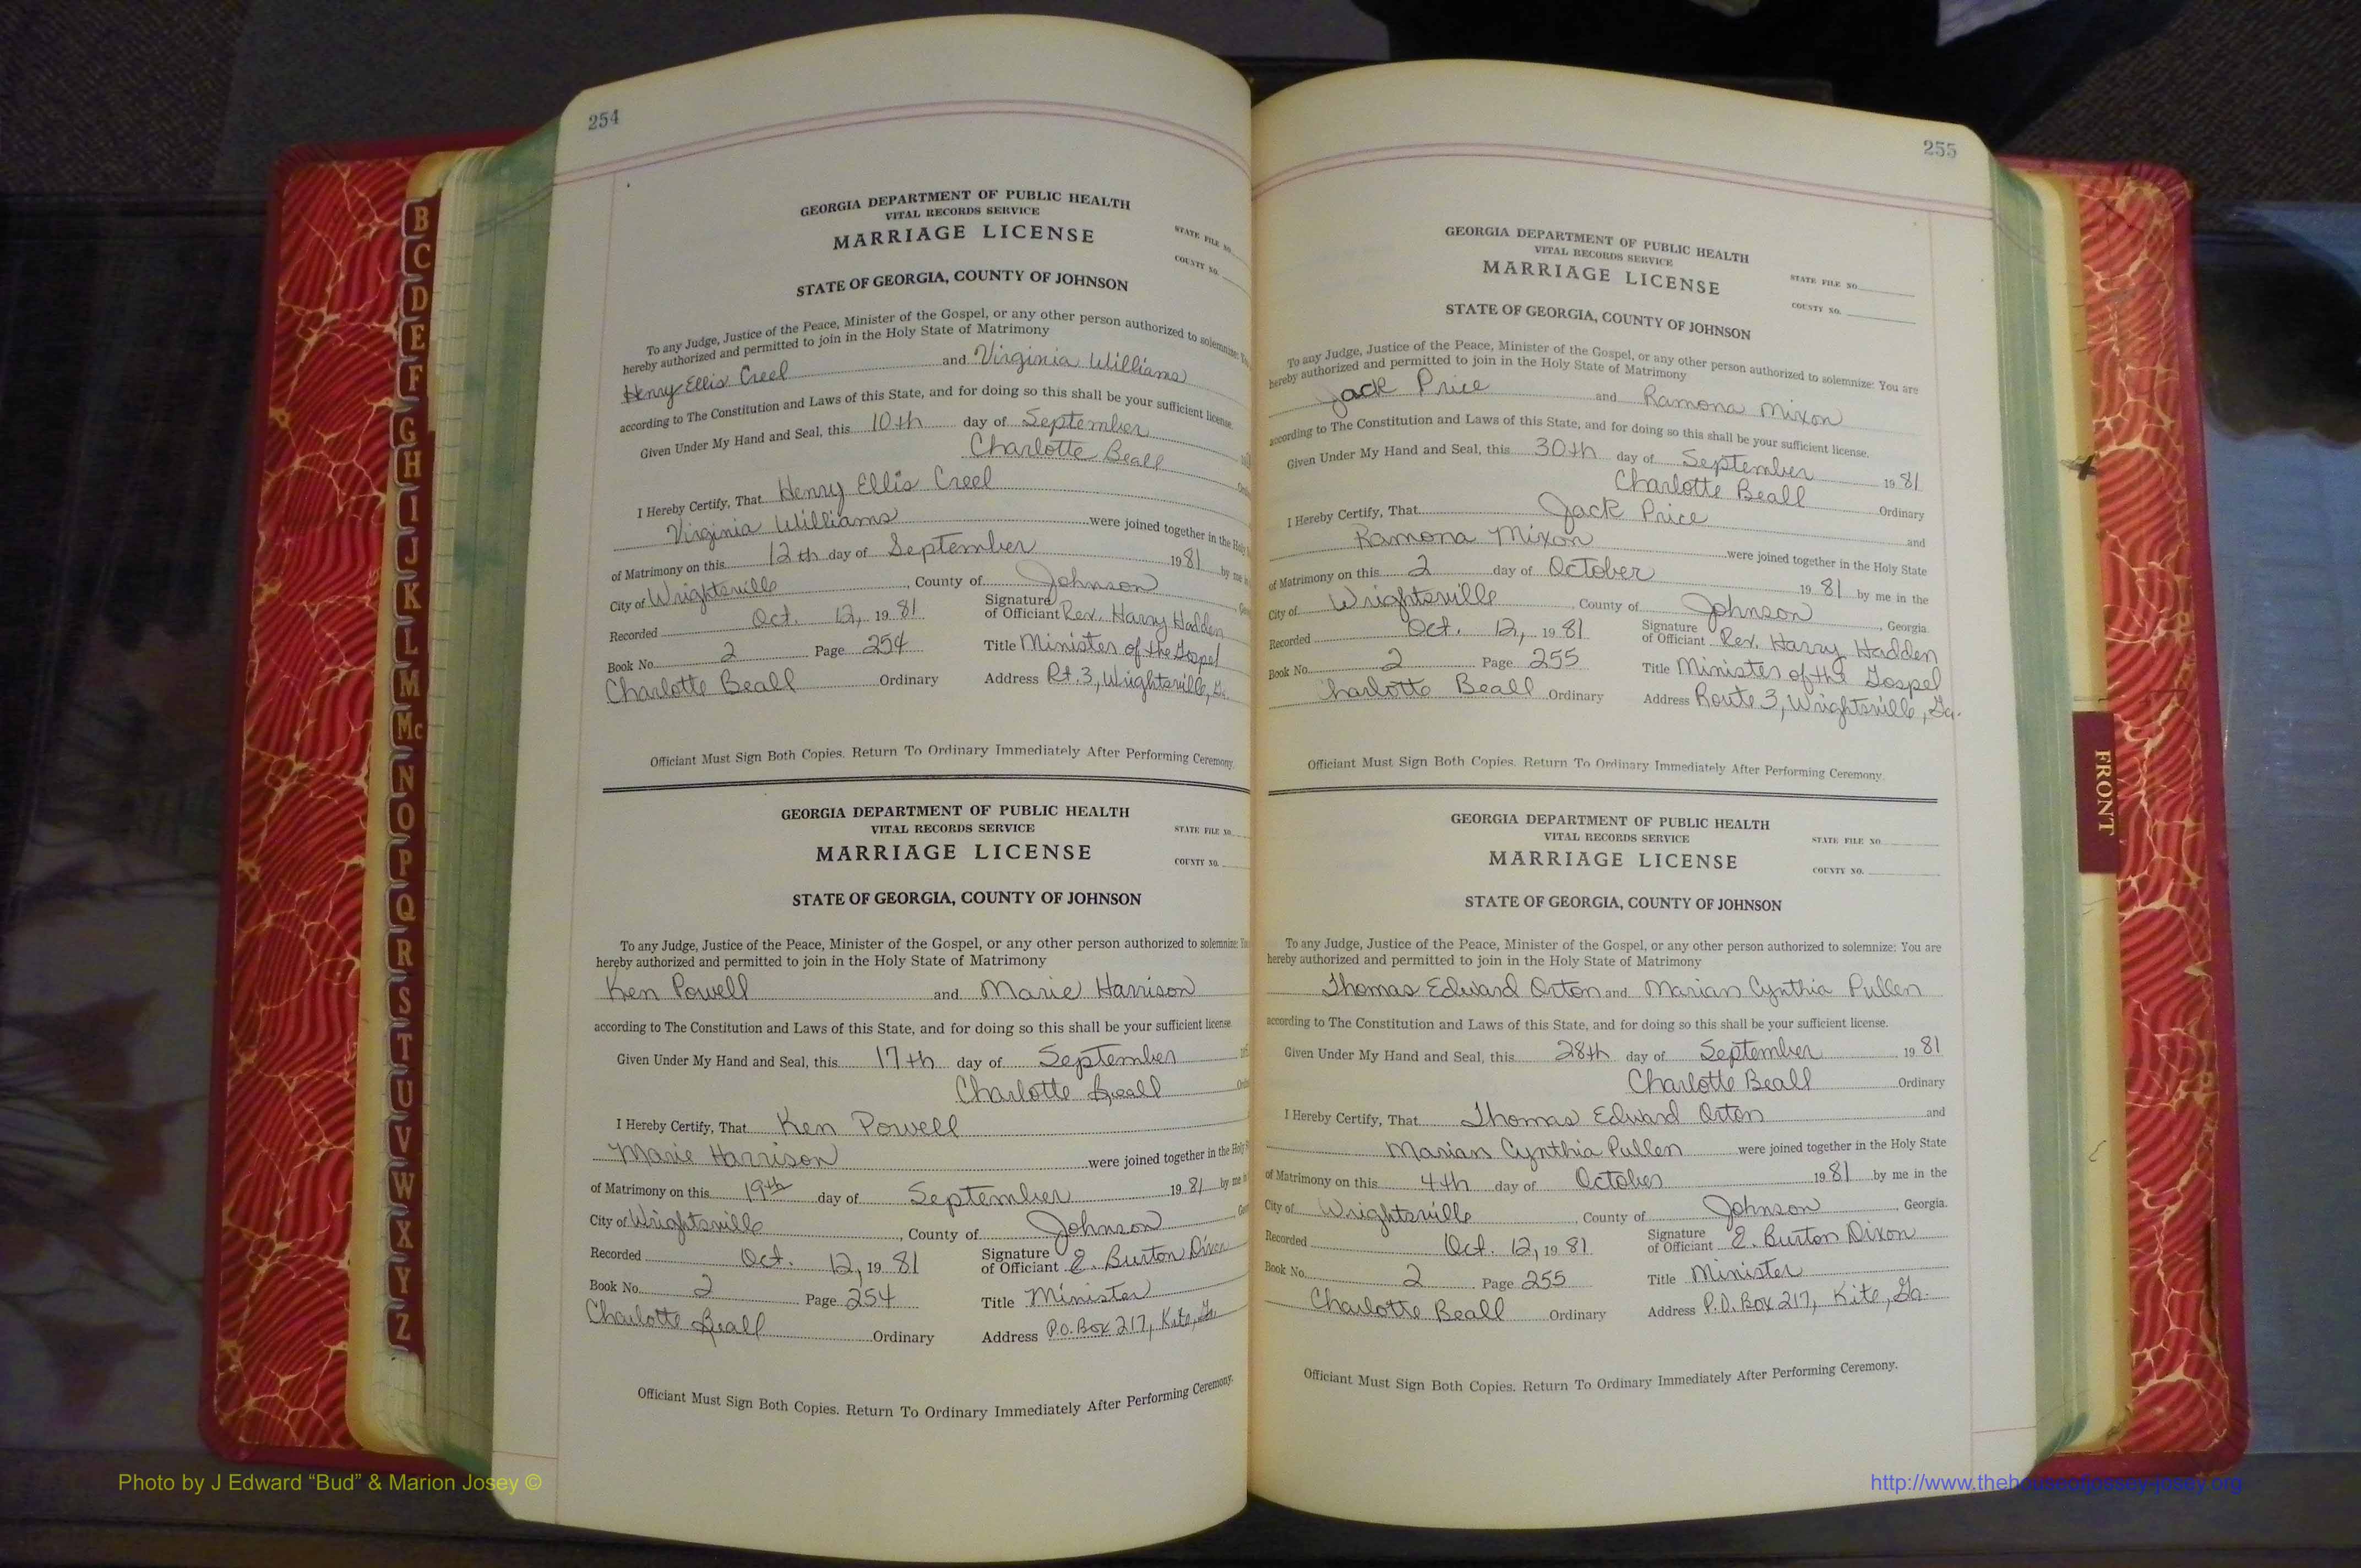 254
GEORGIA DEPARTMENT OF PUBLIC HEALTH
VITAL RECORDS SERVICE
MARRIAGE LICENSE
STATE FILE NO.
COUNTY NO.
STATE OF GEORGIA, COUNTY OF JOHNSON
To any Judge, Justice of the Peace, Minister of the Gospel, or any other person authorized to solemnize:
hereby authorized and permitted to join in the Holy State of Matrimony
Henry Ellis Creel and Virginia Williams
according to The Constitution and Laws of this State, and for doing so this shall be your sufficient license.
Given Under My Hand and Seal, this 10th day of September
Charlotte Beall
I Hereby Certify, That Henry Ellis Creel
Virginia Williams were joined together in the
of Matrimony on this 12th day of September 1981 by me
City of Wrightsville, County of Johnson
Recorded Oct. 12, 1981 Signature of Officiant Rev. Harry Hadden
Book No. 2 Page 254 Title Minister of the Gospel
Charlotte Beall Ordinary Address Rt. 3, Wrightsville, Ga.
Officiant Must Sign Both Copies. Return To Ordinary Immediately After Performing Ceremony.
GEORGIA DEPARTMENT OF PUBLIC HEALTH
VITAL RECORDS SERVICE
MARRIAGE LICENSE
STATE FILE NO.
COUNTY NO.
STATE OF GEORGIA, COUNTY OF JOHNSON
To any Judge, Justice of the Peace, Minister of the Gospel, or any other person authorized to solemnize:
hereby authorized and permitted to join in the Holy State of Matrimony
Ken Powell and Marie Harrison
according to The Constitution and Laws of this State, and for doing so this shall be your sufficient license
Given Under My Hand and Seal, this 17th day of September
Charlotte Beall
I Hereby Certify, That Ken Powell
Marie Harrison were joined together in the
of Matrimony on this 19th day of September 1981 by me
City of Wrightsville, County of Johnson
Recorded Oct. 12, 1981 Signature of Officiant E. Burton Dixon
Book No. 2 Page 254 Title Minister
Charlotte Beall Ordinary Address P.O. Box 217, Kite, Ga
Officiant Must Sign Both Copies. Return To Ordinary Immediately After Performing Ceremony.
255
GEORGIA DEPARTMENT OF PUBLIC HEALTH
VITAL RECORDS SERVICE
MARRIAGE LICENSE
STATE FILE NO.
COUNTY NO.
STATE OF GEORGIA, COUNTY OF JOHNSON
To any Judge, Justice of the Peace, Minister of the Gospel, or any other person authorized to solemnize: You are
hereby authorized and permitted to join in the Holy State of Matrimony
Jack Price and Ramona Mixon
according to The Constitution and Laws of this State, and for doing so this shall be your sufficient license.
Given Under My Hand and Seal, this 30th day of September 1981
Charlotte Beall Ordinary
I Hereby Certify, That Jack Price and
Ramona Mixon were joined together in the Holy State
of Matrimony on this 2 day of October 1981 by me in the
City of Wrightsville, County of Johnson, Georgia
Recorded Oct. 12, 1981 Signature of Officiant Rev. Harry Hadden
Book No. 2 Page 255 Title Minister of the Gospel
Charlotte Beall Ordinary Address Route 3, Wrightsville, Ga.
Officiant Must Sign Both Copies. Return To Ordinary Immediately After Performing Ceremony.
GEORGIA DEPARTMENT OF PUBLIC HEALTH
VITAL RECORDS SERVICE
MARRIAGE LICENSE
STATE FILE NO.
COUNTY NO.
STATE OF GEORGIA, COUNTY OF JOHNSON
To any Judge, Justice of the Peace, Minister of the Gospel, or any other person authorized to solemnize: You are
hereby authorized and permitted to join in the Holy State of Matrimony
Thomas Edward Orton and Marian Cynthia Pullen
according to The Constitution and Laws of this State, and for doing so this shall be your sufficient license.
Given Under My Hand and Seal, this 28th day of September 1981
Charlotte Beall Ordinary
I Hereby Certify, That Thomas Edward Orton and
Marian Cynthia Pullen were joined together in the Holy State
of Matrimony on this 4th day of October 1981 by me in the
City of Wrightsville, County of Johnson, Georgia.
Recorded Oct. 12, 1981 Signature of Officiant E. Burton Dixon
Book No. 2 Page 255 Title Minister
Charlotte Beall Ordinary Address P.O. Box 217, Kite, Ga.
Officiant Must Sign Both Copies. Return To Ordinary Immediately After Performing Ceremony.
B
C
D
E
F
G
H
I
J
K
L
M
Mc
N
O
P
Q
R
S
T
U
V
W
X
Y
Z
FRONT
Photo by J Edward “Bud” & Marion Josey ©
http://www.thehouseofjossey-josey.org